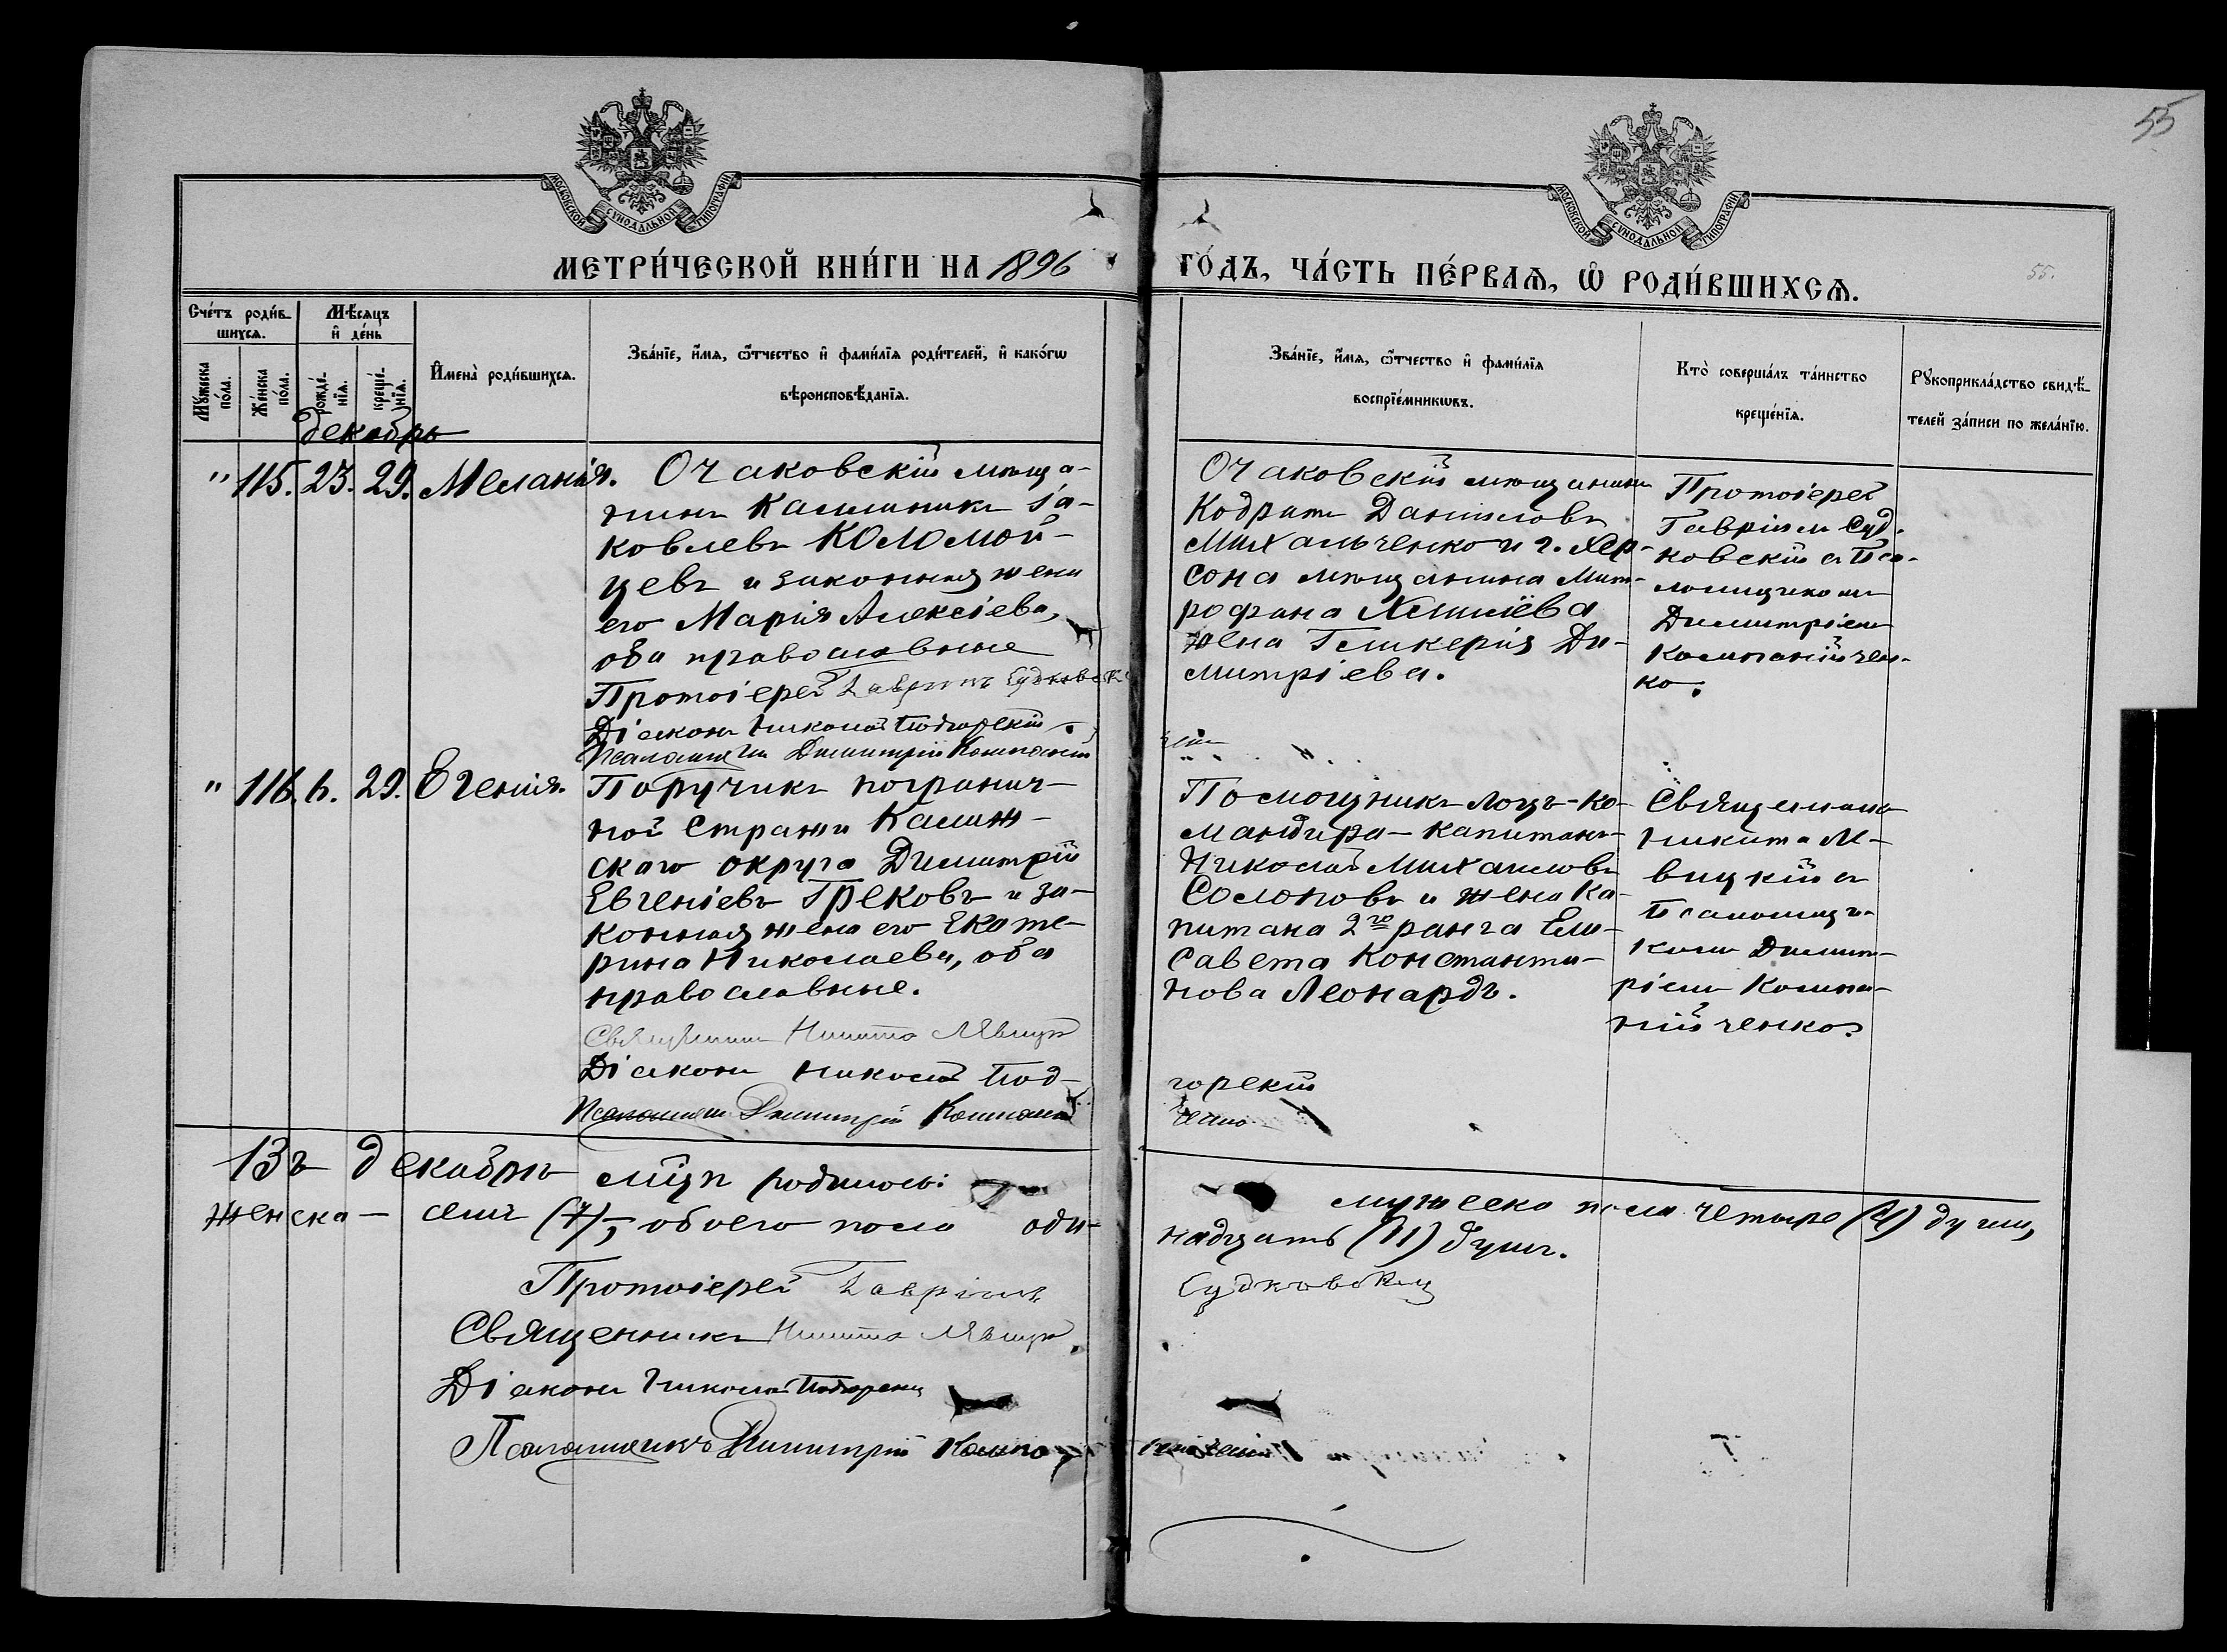 55
МОСКОВСКОЙ СѴНОДАЛЬНОЙ ТИПОГРАФІИ
МОСКОВСКОЙ СѴНОДАЛЬНОЙ ТИПОГРАФІИ
МЕТРИ́ЧЕСКОЙ КНИ́ГИ НА 1896
ГО́ДЪ, ЧА́СТЬ ПЕ́РВАѦ, Ѡ РОДИ́ВШИХСѦ.
55.
Сче́тъ роди́в-
шихсѧ.
Мꙋ́жеска
по́ла.
Же́нска
по́ла.
Мѣ́сѧцъ
и҆ де́нь
рожде́-
нїѧ.
креще́-
нїѧ.
И҆мена̀ роди́вшихсѧ.
Зва́нїе, и҆́мѧ, ѻ҆́тчество и҆ фами́лїѧ роди́телей, и҆ како́гѡ
вѣроисповѣ́данїѧ.
Зва́нїе, и҆́мѧ, ѻ҆́тчество и҆ фами́лїѧ
воспрїе́мникѡвъ.
Кто̀ соверша́лъ та́инство
креще́нїѧ.
Рꙋкоприкла́дство свидѣ́-
телей за́писи по жела́нїю.
декабрь
" 115. 23. 29. Меланія.
Очаковскій мѣща-
нинъ Каллиникъ Іа-
ковлевъ Коломой-
цевъ и законная жена
его Марія Алексіева,
оба православные
Протоіерей Гавріилъ Судковск
Діаконъ Николай Подгорскій.
Псаломщикъ Димитрій Компаній
Очаковскій мѣщанинъ
Кодратъ Даниловъ
Михальченко и г. Хер-
сона мѣщанина Мит-
рофана Хмилёва
жена Гликерія Ди-
митріева.
Протоіерей
Гавріилъ Суд-
ковскій съ Пса-
ломщикомъ
Димитріемъ
Компанійчен-
ко.
" 116. 6. 29. Евгенія.
Поручикъ погранич-
ной стражи Калиш-
скаго округа Димитрій
Евгеніевъ Грековъ и за-
конная жена его Екате-
рина Николаева, оба
православные.
Священникъ Никита Лѣвиц
Діаконъ Николай Под-
горскій
Псаломщ Димитрій Компаній
ченко
Помощникъ Лоцъ-Ко-
мандира-Капитанъ
Николай Михаиловъ
Солоповъ и жена Ка-
питана 2го ранга Ели-
савета Константи-
нова Леонардъ.
Священникъ
Никита Л-
вицкій съ
Псаломщи-
комъ Димит-
ріемъ Компа-
нійченко.
Въ декабрѣ мѣсяцѣ родилось:
мужеска пола четыре (4) души,
женска — семь (7), обоего пола оди-
надцать (11) душъ.
Протоіерей Гавріилъ
Судковскій
Священникъ Никита Лѣвиц
Діаконъ Николай Подгорскій
Псаломщикъ Димитрій Компа